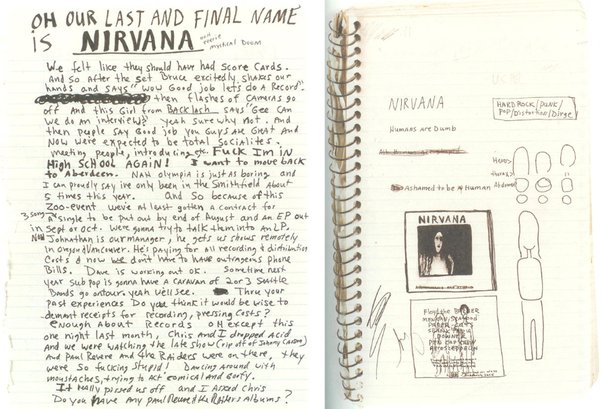 OH OUR LAST AND FINAL NAME
is NIRVANA
ooh eerie
mystical Doom
We felt like they should have had score cards.
And so after the set Bruce excitedly shakes our
hands and says "WOW Good job lets do A Record".
then flashes of CAMERAS go
off And this Girl from BAckLash says "Gee Can
we do an interview? yeah sure why not. And
then people say Good job you guys are Great And
Now were expected to be total socialites.
meeting people, introducing etc. FUCK IM IN
HiGH SCHOOL AGAIN! I want to move back
to Aberdeen. NAH olympia is just as boring and
I can proudly say ive only been in the Smithfield about
5 times this year. And So because of this
Zoo-event weve At least gotten a contract for
3 song
A single to be put out by end of August and an EP out
in Sept or oct. Were gonna try to talk them into An LP.
Now Johnathan is our manager, he gets us shows remotely
in Oregon & Vancouver. He's paying for all recording & distribution
Costs & now we dont have to have outrageous phone
Bills. Dave is working out ok. Sometime next
year Sub pop is gonna have A CARAVAN of 2 or 3 Seattle
Bands go on tour. yeah well see. Thru your
past experiences Do you think it would be wise to
demand receipts for recording, pressing Costs?
enough About Records oH Except this
one night last month, Chris and I dropped acid
And we were watching the late show (rip off of Johnny Carson)
and Paul Revere And the Raiders were on there. they
were so fucking stupid! Dancing around with
moustaches, trying to Act comical and Goofy.
It really pissed us off and I Asked Chris
Do you have Any Paul Revere & the Raiders Albums?
NIRVANA
HARD ROCK/PUNK/
POP/Distortion/Dirge
Humans Are Dumb
Ashamed to be A Human
Heres
thorax
Abdomen
NIRVANA
Floyd the BARBER
PAPER CUTS
SPANK THRU
DOWNER
PEN CAP CHEW
AEROZEPPELIN